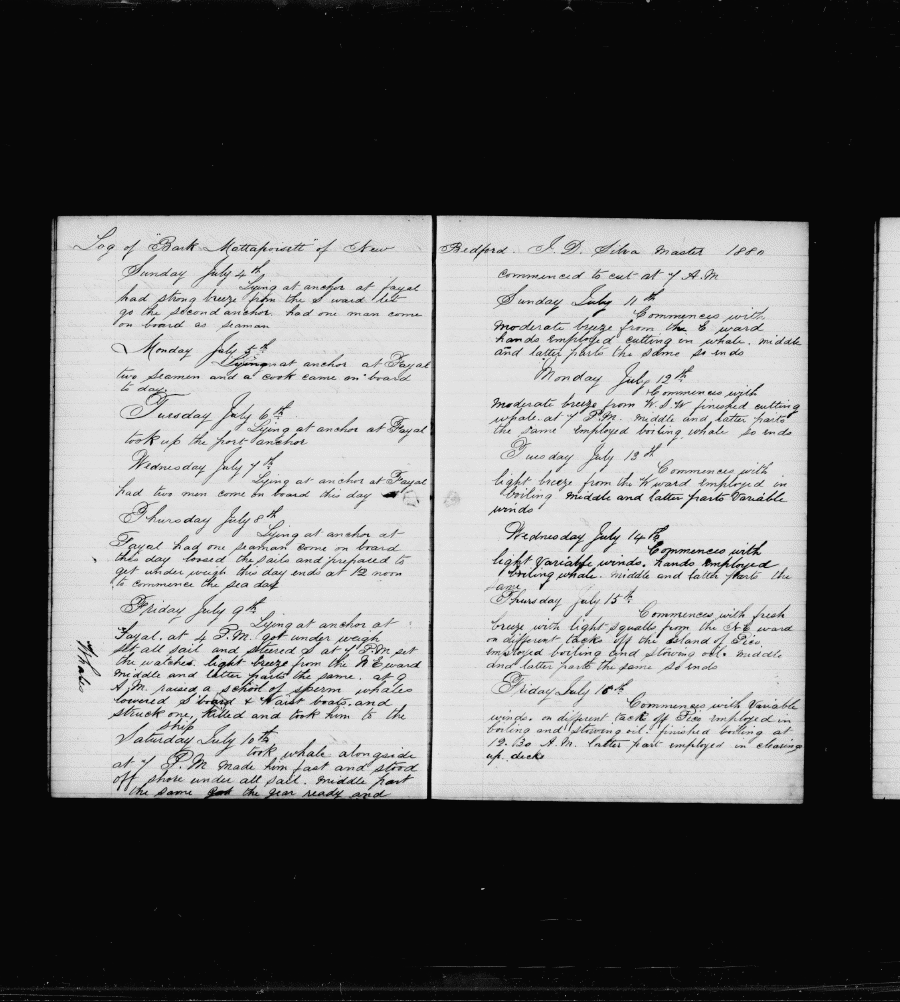 Log of "Bark Mattapoisett" of New
Sunday July 4th
Lying at anchor at fayal
had strong breeze from the S ward let
go the second anchor. had one man come
on board as seaman
Monday July 5th
Lying at anchor at Fayal
two seamen and a cook came on board
to day
Tuesday July 6th
Lying at anchor at Fayal
took up the port anchor
Wednesday July 7th
Lying at anchor at Fayal
had two men come on board this day
Thursday July 8th
Lying at anchor at
Fayal had one seaman come on board
this day loosed the sails and prepared to
get under weigh this day ends at 12 noon
to commence the sea day
Friday July 9th
Lying at anchor at
Fayal. at 4 P.M. got under weigh
set all sail and steered S at 7 P.M set
the watches. light breeze from the N E ward
middle and latter parts the same. at 9
A.M. raised a school of sperm whales
lowered S board & Waist boats. and
struck one, killed and took him to the
ship
Whales
Saturday July 10th
took whale alongside
at 7 P.M made him fast and stood
off shore under all sail. middle part
the same got the gear ready and
Bedford. I. D. Silva master 1880
commenced to cut at 7 A.M
Sunday July 11th
Commences with
moderate breeze from the E ward
hands employed cutting in whale. middle
and latter parts the same so ends
Monday July 12th
Commences with
moderate breeze from W.S.W finished cutting
whale. at 7 P.M. middle and latter parts
the same employed boiling. whale so ends
Tuesday July 13th
Commences with
light breeze from the W ward employed in
boiling middle and latter parts Variable
winds
Wednesday July 14th
Commences with
light Variable winds. hands employed
boiling whale. middle and latter parts the
same
Thursday July 15th
Commences with fresh
breeze with light squalls from the N E ward
on different tacks off the island of Pico.
employed boiling and stowing oil. middle
and latter parts the same so ends
Friday July 16th
Commences with Variable
winds. on different tacks off Pico employed in
boiling and stowing oil. finished boiling at
12.30 A.M. latter part employed in clearing
up decks